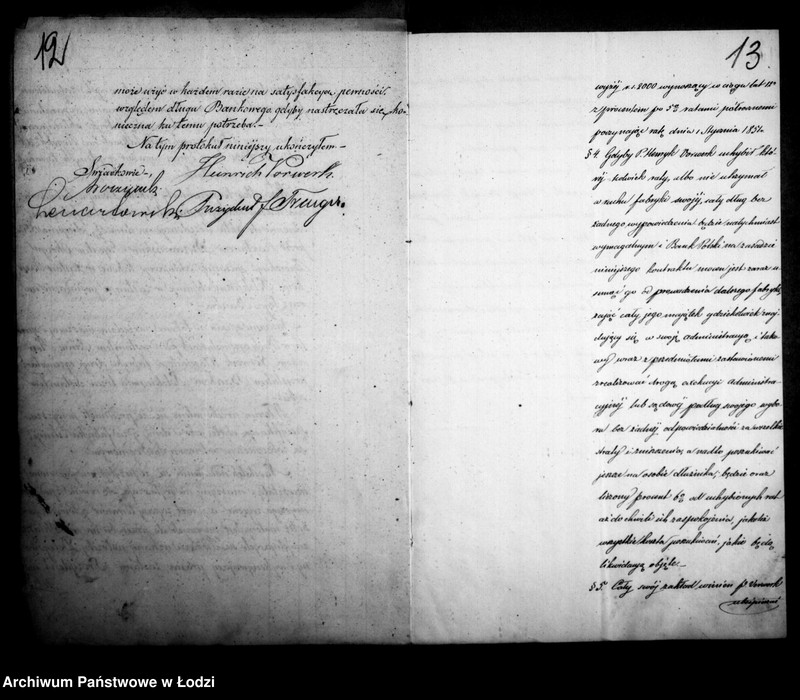 12
może użyć w każdem razie na satysfakcyą pewności
względem długu Bankowego gdyby nastręczała się ko-
nieczna ku temu potrzeba.-
Na tym protokuł niniejszy ukończyłem-
Świadkowie-, Heinrich Vorwerk.
Prezydent f Traeger.
13
wyżej r.s. 2000 wynoszący w ciągu lat
z procentem po 5% ratami półrocznemi
poczynając ratę dnia 1 Stycznia 1851.
§ 4. Gdyby P. Henryk Vorwerk uchybił któ-
rej kolwiek raty, albo nie utrzymał
w ruchu fabryki swojej, cały dług bez
żadnego wypowiedzenia będzie natychmiast
wymagalnym i Bank Polski na zasadzie
niniejszego kontraktu mocen jest zaraz u-
sunąć go od prowadzenia dalszego fabryki,
zająć cały jego majątek gdziekolwiek znaj-
dujący się w swoją administracyą i tako-
wy wraz z przedmiotami zastawionemi
zrealizować drogą exekucyi administra-
cyjnej lub sądowej podług swojego wybo-
ru bez żadnej odpowiedzialności za wszelkie
straty i zniszczenia, a nadto poszukiwać
jeszcze na osobie dłużnika, będzie oraz
liczony procent 6% od uchybionych rat
aż do chwili ich zaspokojenia, jakoteż
wszystkie koszta poszukiwań, jakie będą
likwidacyą objęte.-
§ 5. Cały swój zakład winien P. Vorwerk